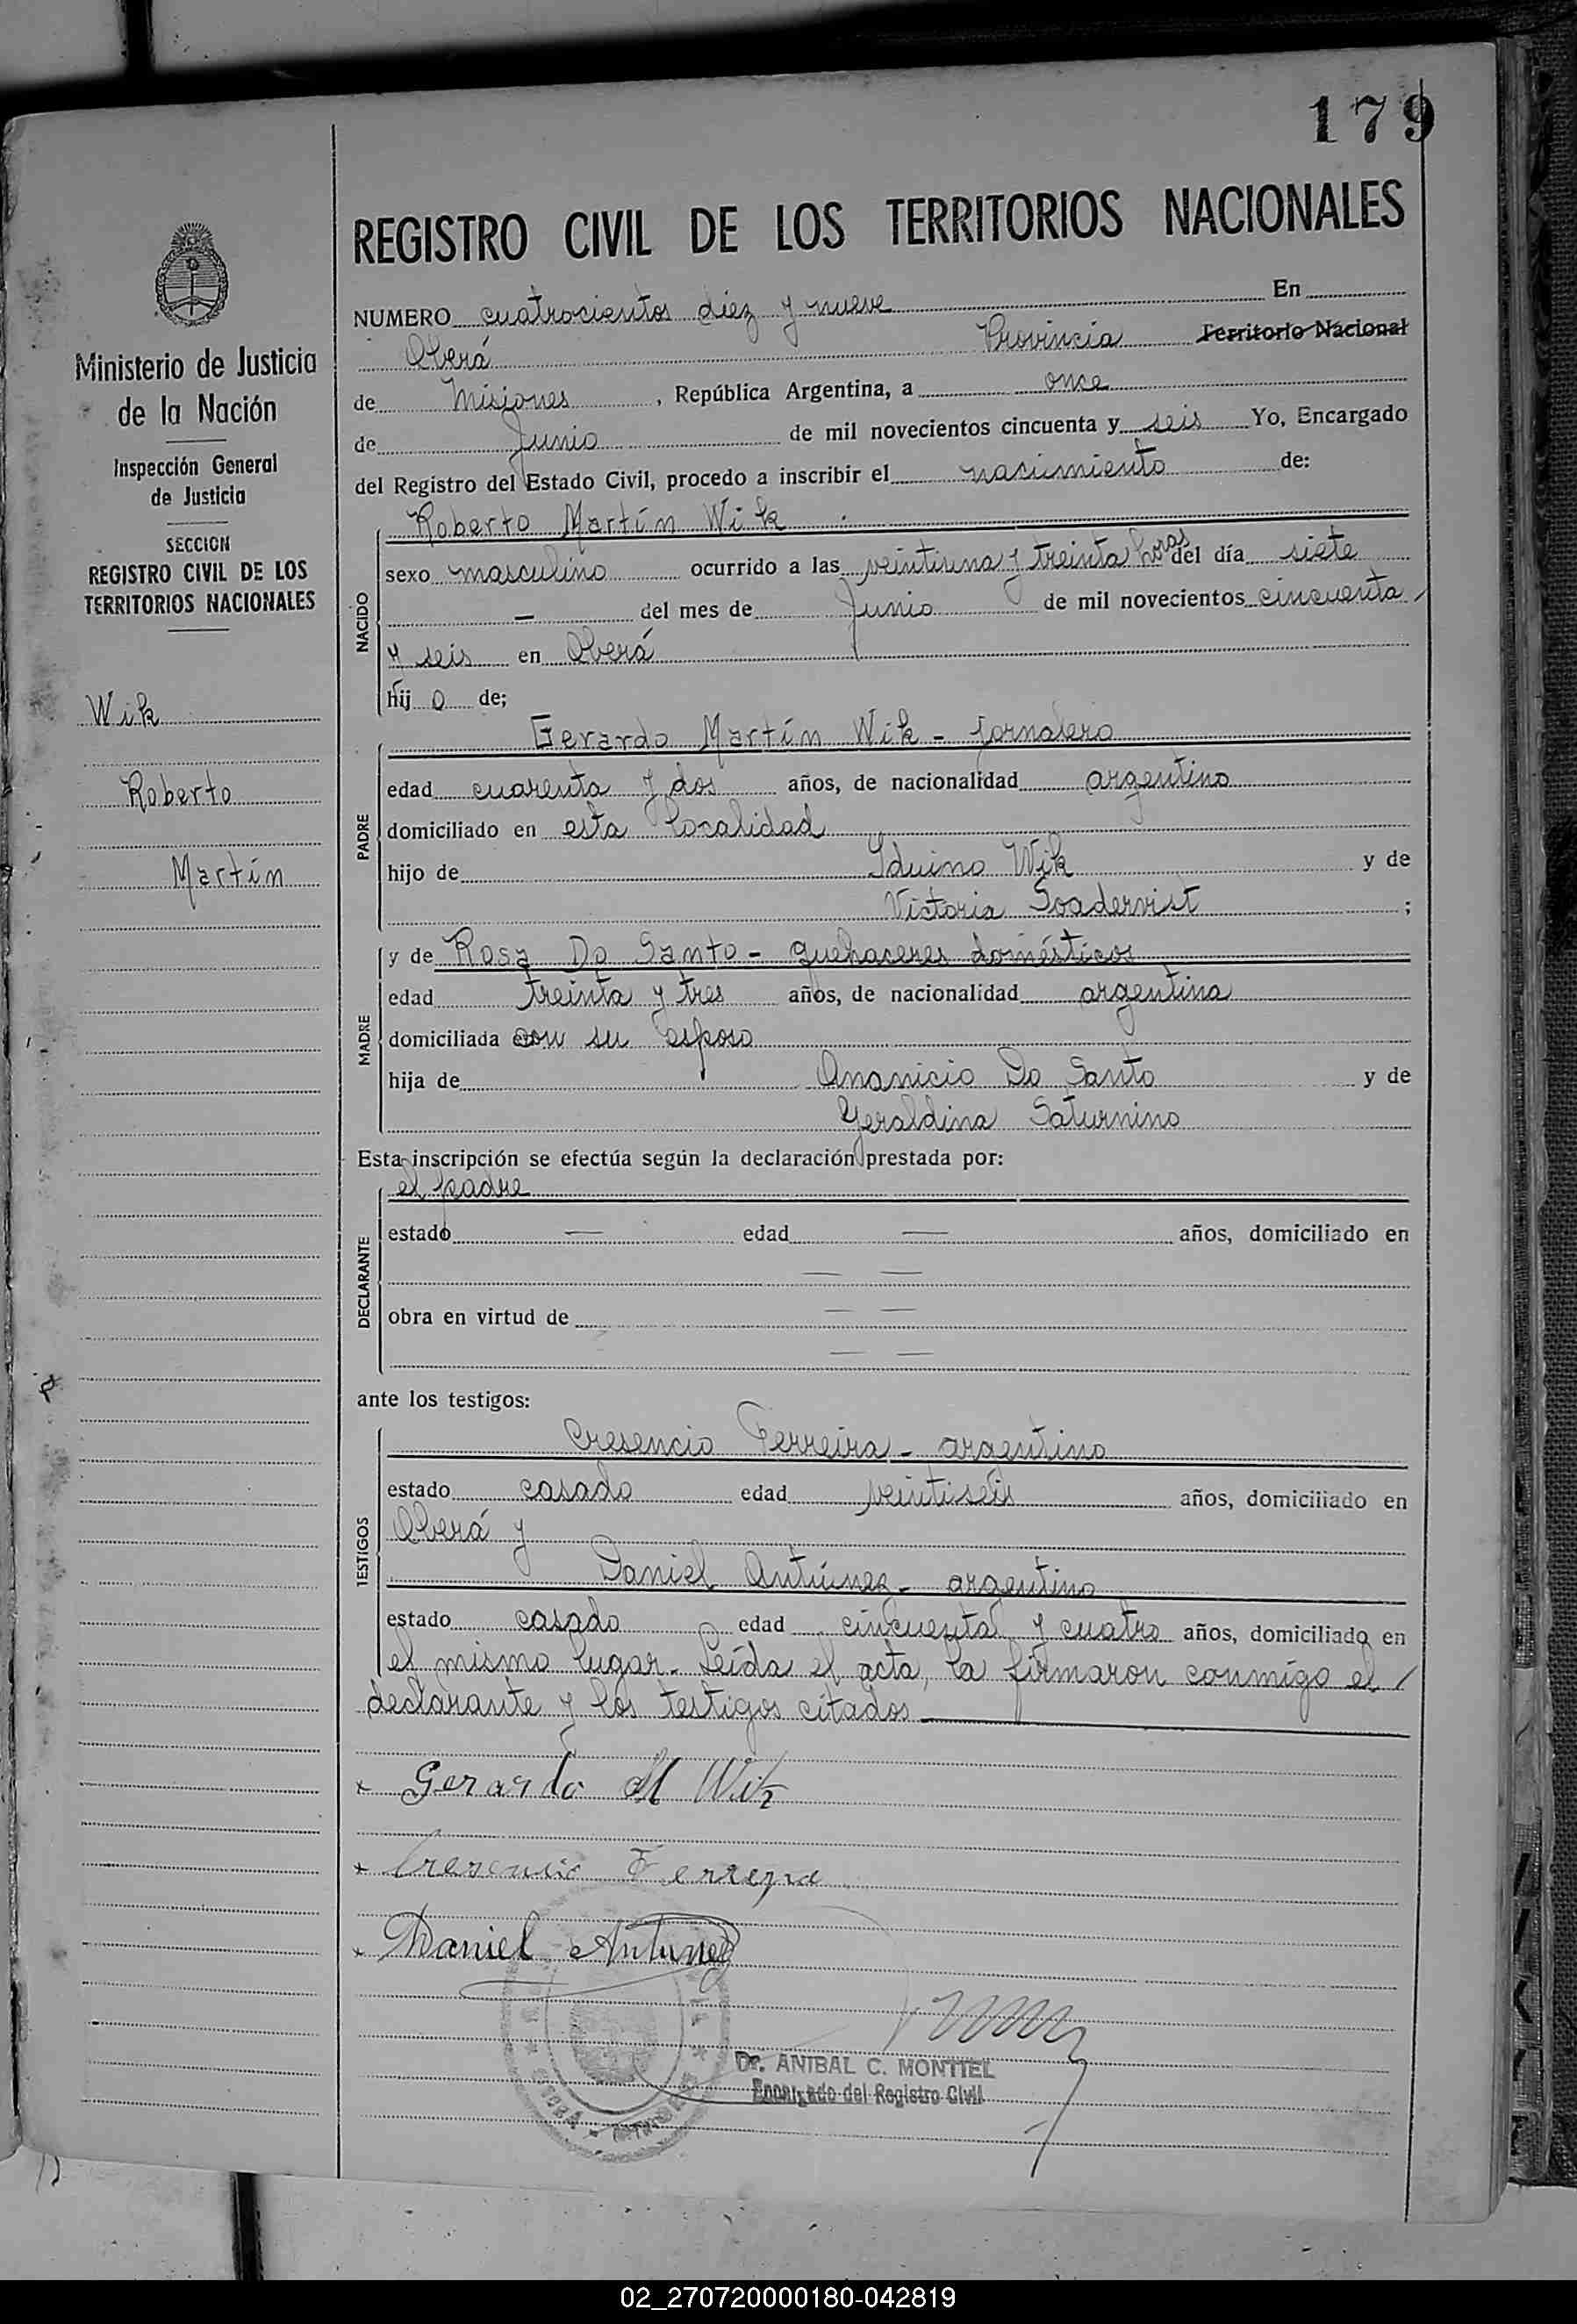 179
REGISTRO CIVIL DE LOS TERRITORIOS NACIONALES
Ministerio de Justicia
de la Nación
Inspección General
de Justicia
SECCION
REGISTRO CIVIL DE LOS
TERRITORIOS NACIONALES
Wik
Roberto
Martín
NUMERO cuatrocientos diez y nueve En
Oberá Provincia Territorio Nacional
de Misiones, República Argentina, a once
de Junio de mil novecientos cincuenta y seis Yo, Encargado
del Registro del Estado Civil, procedo a inscribir el nacimiento de:
NACIDO
Roberto Martín Wik
sexo masculino ocurrido a las veintiuna y treinta horas del día siete
— del mes de Junio de mil novecientos cincuenta /
y seis en Oberá
hij o de;
PADRE
Gerardo Martín Wik - jornalero
edad cuarenta y dos años, de nacionalidad argentino
domiciliado en esta localidad
hijo de Iduino Wik y de
Victoria Soadervist ;
MADRE
y de Rosa Do Santo - quehaceres domésticos
edad treinta y tres años, de nacionalidad argentina
domiciliada con su esposo
hija de Ananicio Do Santo y de
Geraldina Saturnino
Esta inscripción se efectúa según la declaración prestada por:
DECLARANTE
el padre
estado — edad — años, domiciliado en
— —
obra en virtud de — —
— —
ante los testigos:
TESTIGOS
Cresencio Ferreira - argentino
estado casado edad veintiseis años, domiciliado en
Oberá y
Daniel Antúnez - argentino
estado casado edad cincuenta y cuatro años, domiciliado en
el mismo lugar. Leída el acta, la firmaron conmigo el /
declarante y los testigos citados
x Gerardo M Wik
x Cresencio Ferreyra
x Daniel Antunez
Dr. ANIBAL C. MONTIEL
Encargado del Registro Civil
OBERA
02_270720000180-042819